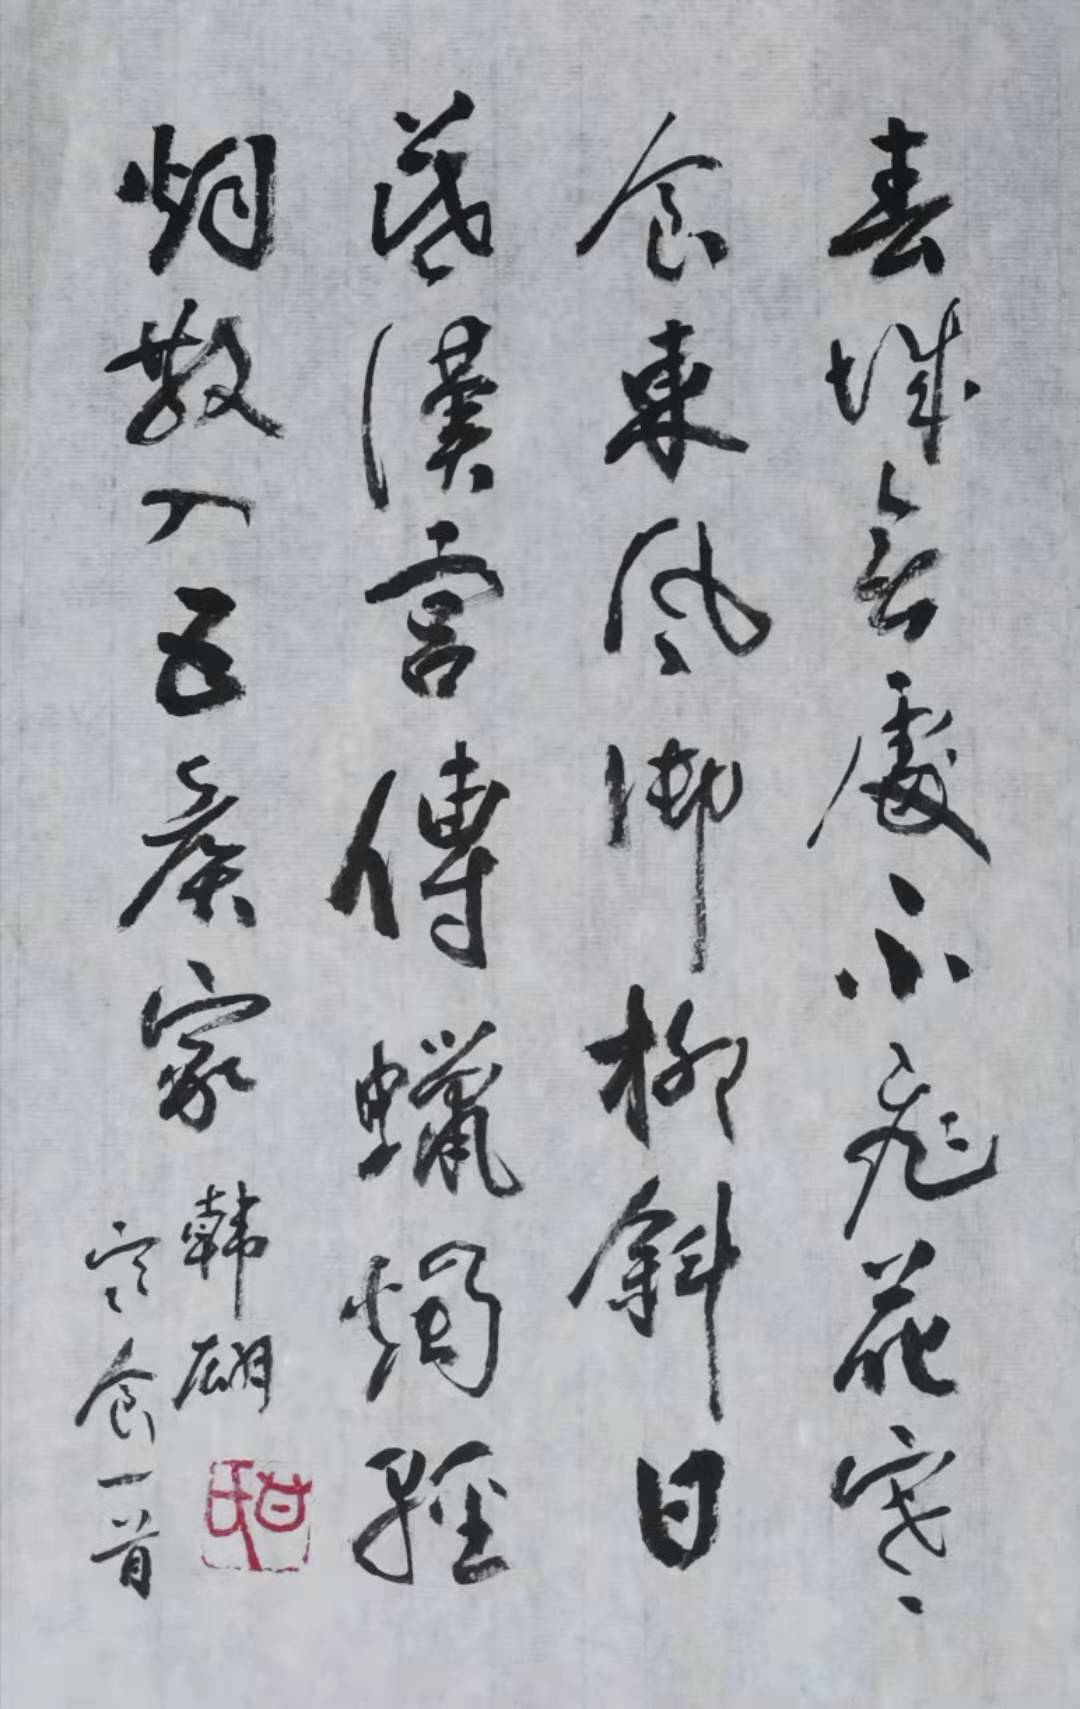 春城無處不飛花寒
食東風御柳斜日
暮漢宮傳蠟燭輕
烟散入五侯家
韓翃
寒食一首
甘氏